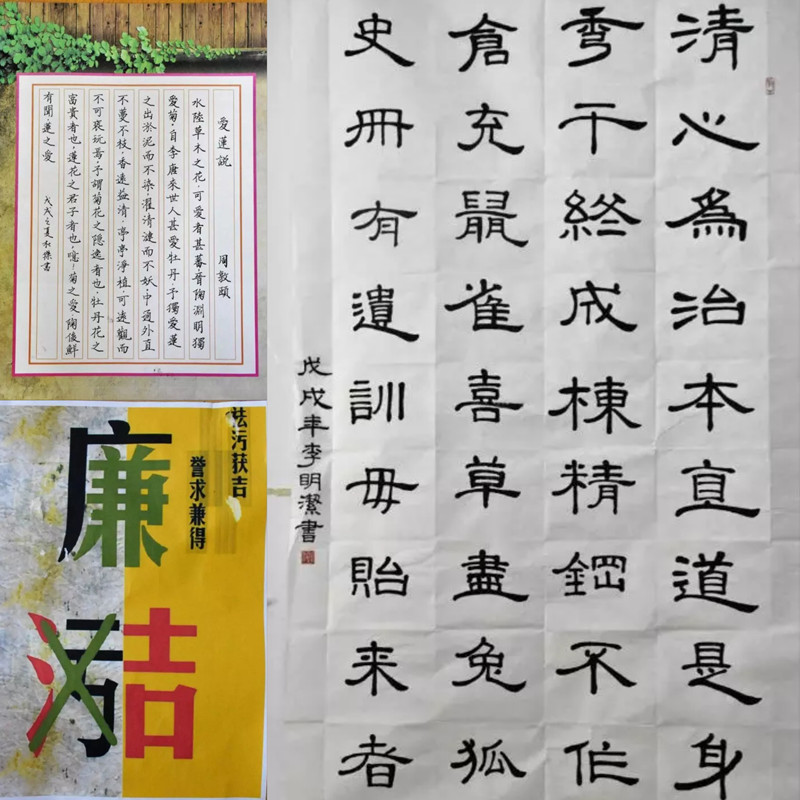 愛蓮説 周敦頤
水陸草木之花·可愛者甚蕃·晋陶淵明獨
愛菊·自李唐来世人甚愛牡丹·予獨愛蓮
之出淤泥而不染·濯清漣而不妖·中通外直
不蔓不枝·香遠益清·亭亭淨植·可遠觀而
不可褻玩焉·予謂菊花之隐逸者也·牡丹花之
富貴者也·蓮花之君子者也·噫·菊之愛陶後鮮
有聞·蓮之愛
戊戌之夏 書
祛污获吉
誉求兼得
廉
污吉
清心為治本直道是身
秀干終成棟精鋼不作
倉充鼠雀喜草盡兔狐
史冊有遺訓毋貽来者
戊戌年李明潔書